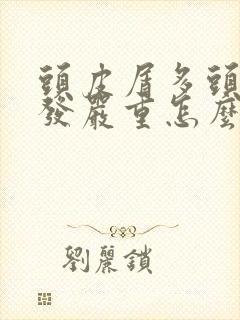 頭皮屑多頭
發嚴重怎麼
劉麗鎖